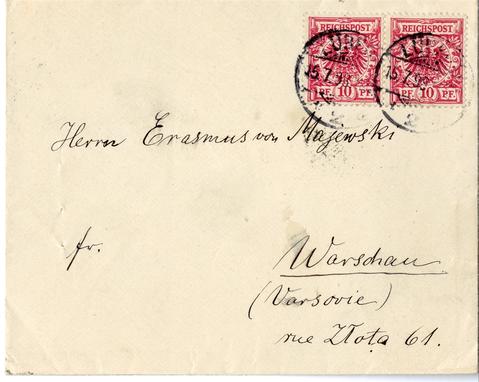 REICHSPOST REICHSPOST
PF. 10 PF. PF. 10 PF.
15.7.9
Herrn Erasmus von Majewski
fr.
Warschau
(Varsovie)
rue Złota 61.